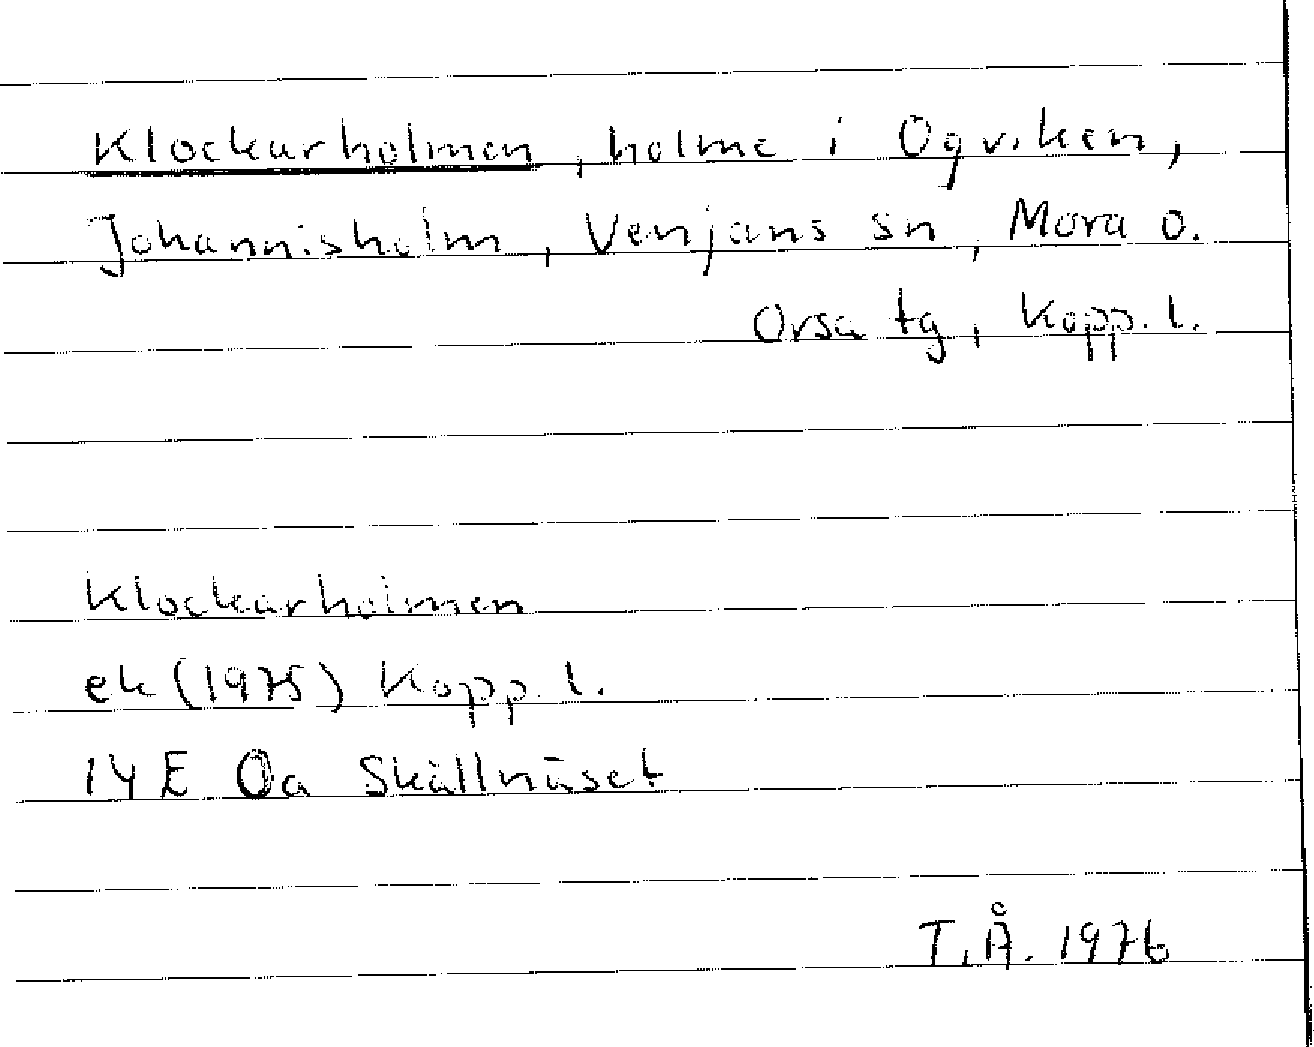 Klockarholmen, holme i Ögviken,
Johannisholm, Venjans sn, Mora o.
Orsa tg, Kopp. l.
Klockarholmen
ek (1975) Kopp. l.
14E 0a Skällnäset
T.Å. 1976